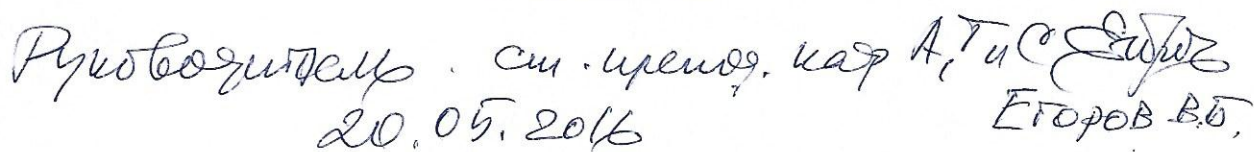 Руководитель. ст. препод. каф А,Т и С
20.05.2016 Егоров В.Б.